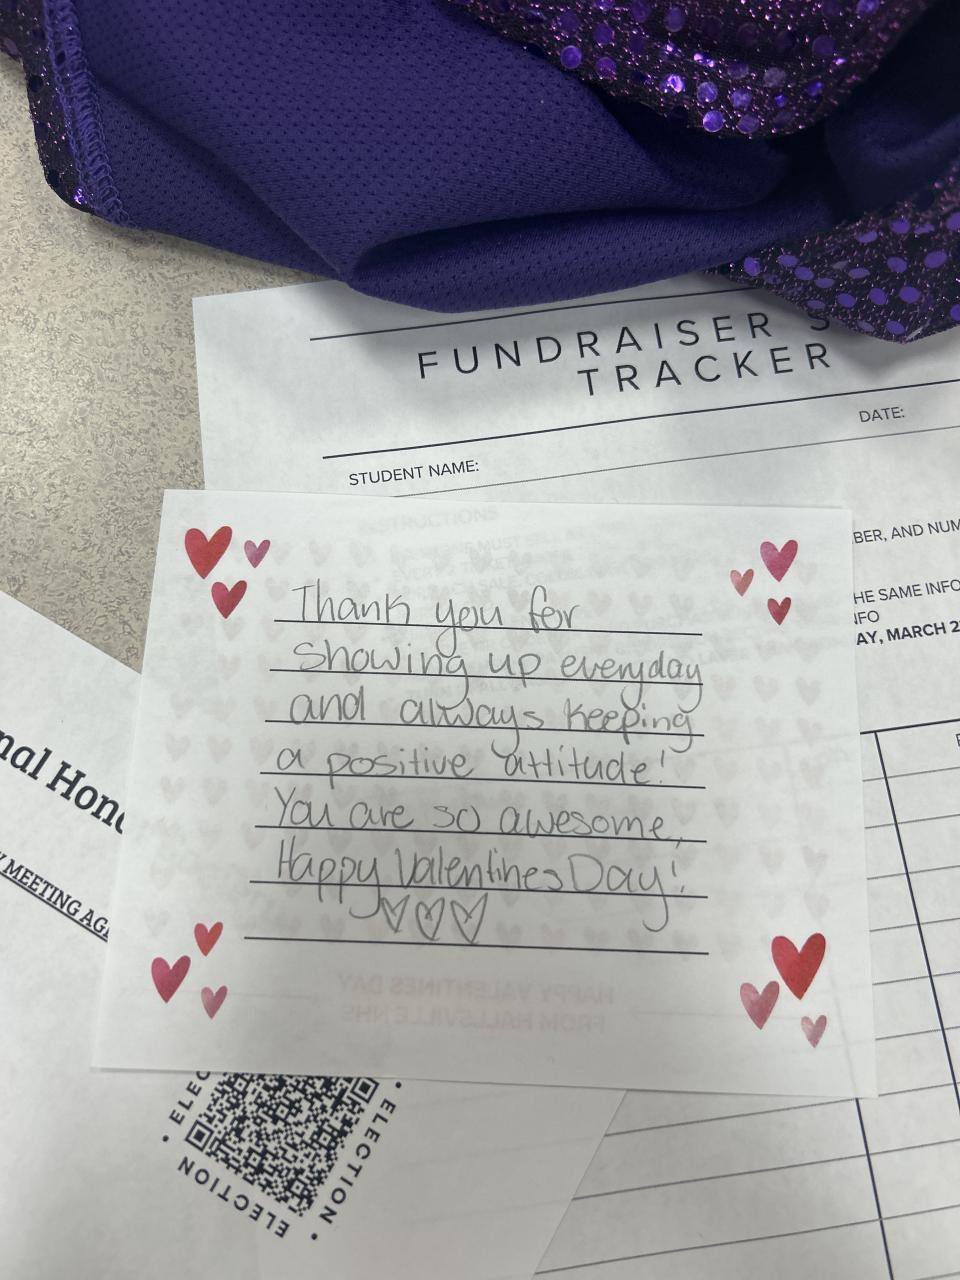 FUNDRAISER S
TRACKER
DATE:
STUDENT NAME:
INSTRUCTIONS
BER, AND NUM
HE SAME INFO
NFO
AY, MARCH 2
Thank you for
showing up everyday
and always keeping
a positive attitude!
You are so awesome,
Happy Valentines Day!
HAPPY VALENTINES DAY
FROM HALLSVILLE NHS
nal Hono
Y MEETING AG
ELEC
ELECTION
ELECTION